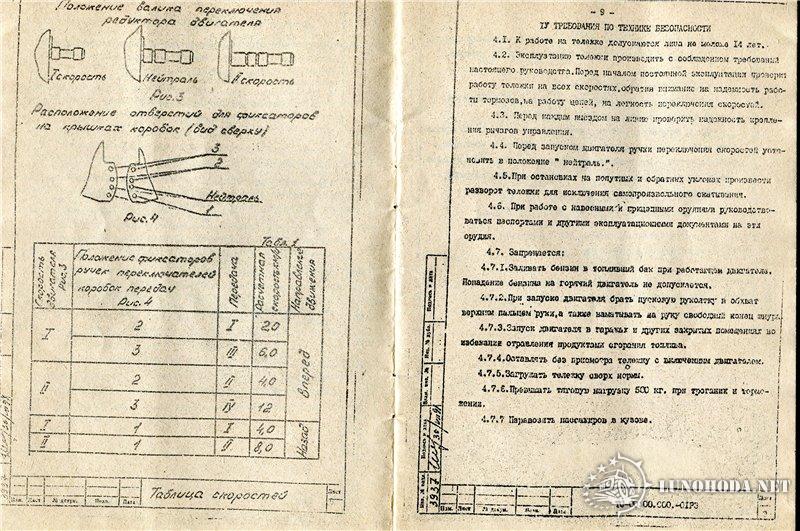 Положение валика переключения
редуктора двигателя
I скорость
Нейтраль
II скорость
Рис.3
Расположение отверстий для фиксаторов
на крышках коробок (вид сверху)
3
2
Нейтраль
1
Рис.4
Табл. 1
Скорость двигателя Рис.3
Положение фиксаторов
ручек переключателей
коробок передач
Рис. 4
Передача
Расчетная скорость км/ч
Направление движения
I 2 I 2,0
3 III 6,0
II 2 II 4,0
3 IV 12
Вперед
I 1 I 4,0
II 1 II 8,0
Назад
Таблица скоростей
Изм. Лист № докум. Подп. Дата
Лист
- 9 -
IУ ТРЕБОВАНИЯ ПО ТЕХНИКЕ БЕЗОПАСНОСТИ
4.I. К работе на тележке допускаются лица не моложе I4 лет.
4.2. Эксплуатацию тележки производить с соблюдением требований
настоящего руководства.Перед началом постоянной эксплуатации проверки
работу тележки на всех скоростях,обратив внимание на надежность рабо-
ты тормозов,на работу цепей, на легкость переключения скоростей.
4.3. Перед каждым выездом на линию проверить надежность крепле-
ния рычагов управления.
4.4. Перед запуском двигателя ручки переключения скоростей уста-
новить в положение " нейтраль.".
4.5.При остановках на попутных и обратных уклонах произвести
разворот тележки для исключения самопроизвольного скатывания.
4.6. При работе с навесными и прицепными орудиями руководство-
ваться паспортами и другими эксплуатационными документами на эти
орудия.
4.7. Запрещается:
4.7.I.Заливать бензин в топливный бак при работающем двигателе.
Попадание бензина на горячий двигатель не допускается.
4.7.2.При запуске двигателя брать пусковую рукоятку в обхват
верхним пальцем руки,а также наматывать на руку свободный конец шнура.
4.7.3.Запуск двигателя в гаражах и других закрытых помещениях во
избежании отравления продуктами сгорания топлива.
4.7.4.Оставлять без присмотра тележку с включенным двигателем.
4.7.5.Загружать тележку сверх нормы.
4.7.6.Превышать тяговую нагрузку 500 кг. при трогании и тормо-
жении.
4.7.7 Перевозить пассажиров в кузове.
Подпись и дата
Инв. № дубл.
Взам. инв. №
Подпись и дата
Инв. № подл.
3937
Изм. Лист № докум. Подп. Дата
00.000.-01РЭ
LUNOHODA.NET